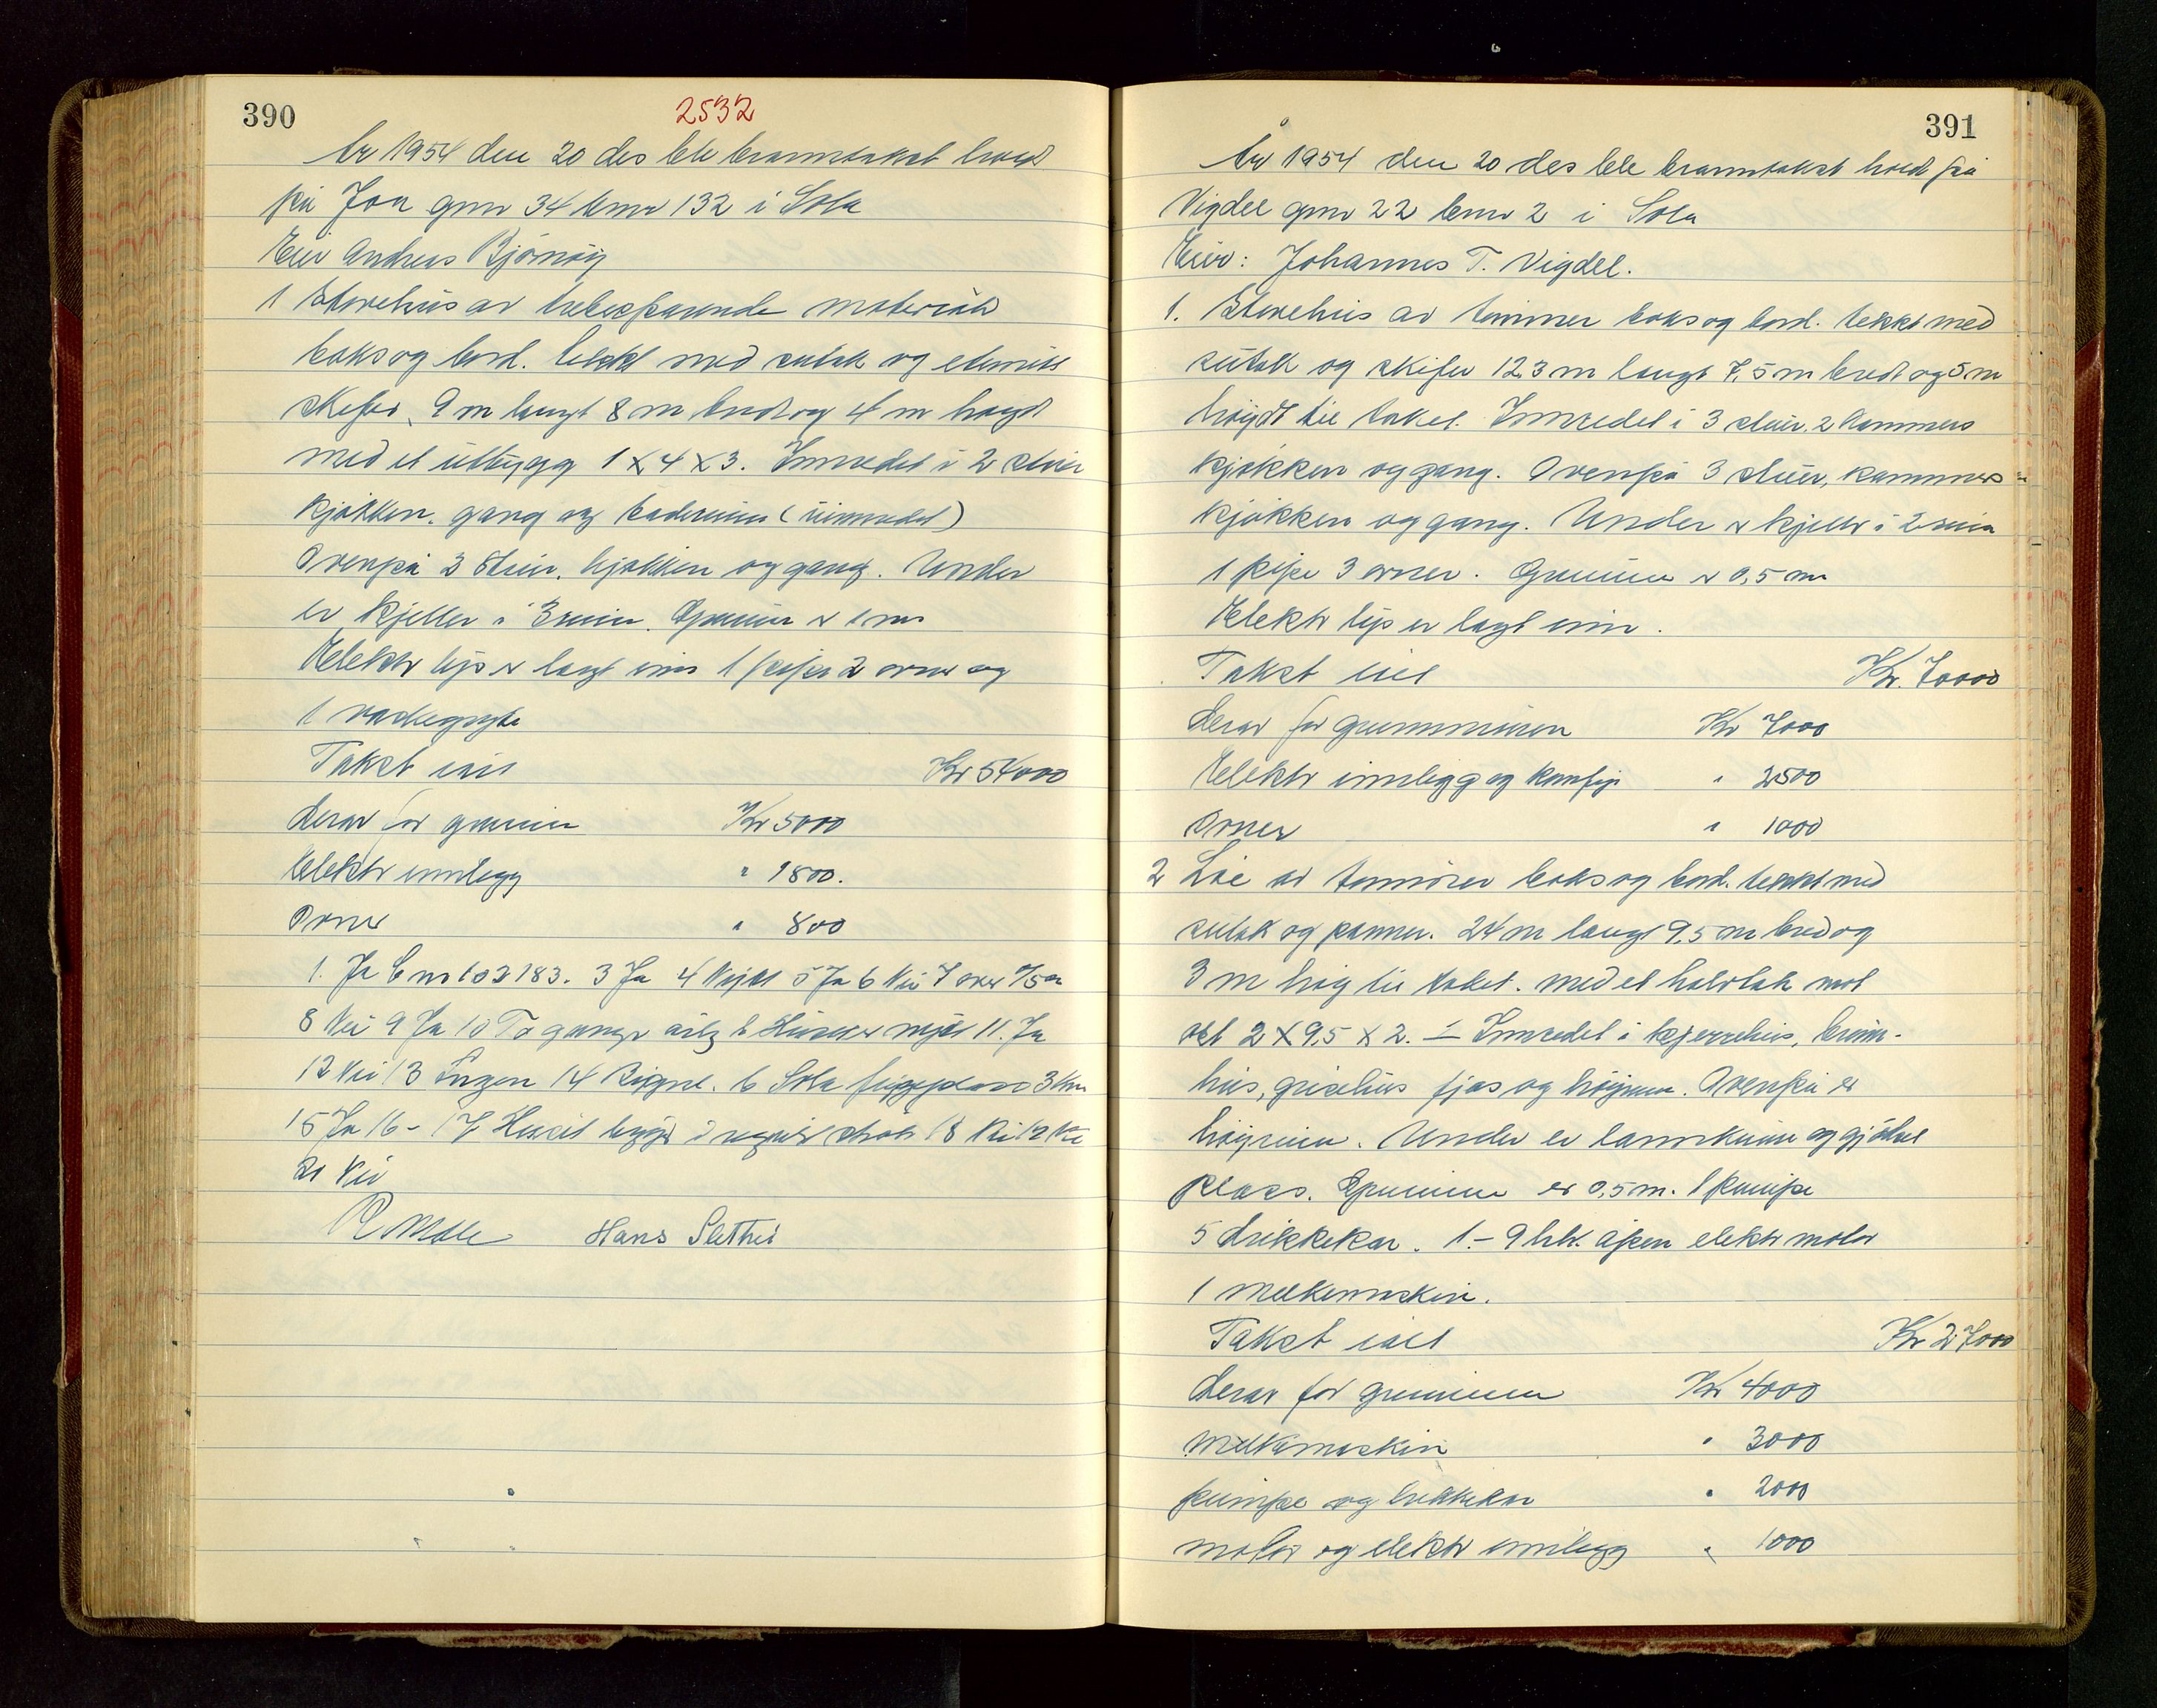 390
2532
År 1954 den 20 des ble branntakst holdt
på Joa gnr 34 bnr 132 i Sola
Eier Andreas Bjørnøy
1 Stovehus av trebesparende materialer
boks og bord. tekkt med sutak og eternitt
skifer, 9 m langt 8 m bredt og 4 m høgd
med et utbygg 1 X 4 X 3. Innredet i 2 stuer
kjøkken, gang og baderum (uinnredet)
Ovenpå 3 Stuer, kjøkken og gang. Under
er kjeller i 3 rum. Grunnmur er 1 m
Elektr lys er lagt inn 1 pipe 2 ovner og
1 vaskegryte
Takst ialt Kr 54000
derav for grunnmur Kr 5000
Elektr innlegg " 1800.
Ovner " 800
1. Ja 3 Ja 4 5 Ja 6 Nei 7 over 75 m
8 Nei 9 Ja 10 To ganger årlig 11. Ja
12 Nei 13 Ingen 14 til Sola flyplass 3 km
15 Ja 16 - 17 Huset ligger i regulert strøk 18 Nei 19 Nei
20 Nei
Hans Slettrei
391
År 1954 den 20 des ble branntakst holdt på
Vigdel gnr 22 bnr 2 i Sola
Eier: Johannes T. Vigdel.
1. Stovehus av tømmer boks og bord. tekkt med
sutak og skifer 12,3 m langt 7,5 m bredt og 5 m
høgdt til taket. Innredet i 3 stuer, 2 kammers
kjøkken og gang. Ovenpå 3 stuer, kammers
kjøkken og gang. Under er kjeller i 2 rum
1 pipe 3 ovner. Grunnmur er 0,5 m
Elektr lys er lagt inn.
Takst ialt Kr. 70000
derav for grunnmuren Kr 7000
Elektr innlegg og komfyr " 2500
Ovner " 1000
2 Løe av tømmer boks og bord. tekkt med
sutak og panner. 24 m langt 9,5 m bred og
3 m høg til taket. med et halvtak mot
øst 2 X 9,5 X 2. - Innredet i kjerrehus, brenn-
hus, grisehus fjøs og høyrum. Ovenpå er
høyrum. Under er lannkum og gjødsel
plass. Grunnmur er 0,5 m. 1 pumpe
5 drikkekar. 1 - 9 hk. åpen elektr motor
1 melkemaskin.
Takst ialt Kr 27000
derav for grunnmuren Kr 4000
Melkemaskin " 3000
pumpe og drikkekar " 2000
motor og elektr innlegg " 1000